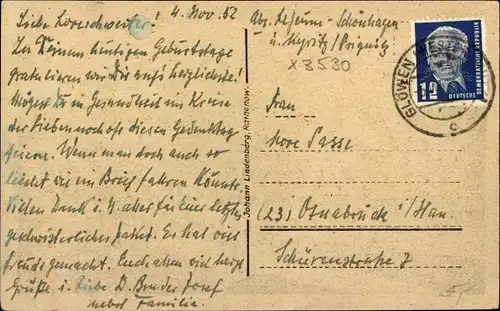 4. Nov. 52
Liebe Loreschwester!
Zu Deinem heutigen Geburtstage
gratulieren wir Dir aufs herzlichste!
Mögest Du in Gesundheit im Kreise
der Lieben noch oft diesen Gedenktag
feiern. Wenn man doch auch so
leicht wie ein Brief fahren könnte.
Vielen Dank i. N. aller für Euer letztes
geschwisterliches Paket. Es hat viel
Freude gemacht. Euch allen viel herzl
Grüße i. Liebe D. Bruder Josef
nebst Familie.
Johann Lindenberg, Rathenow.
Abs. Schönhagen
Kyritz / Prignitz
X3530
Frau
Lore Passe
(23) Osnabrück / Han.
Schürenstraße 7
12
DEUTSCHE
DEMOKRATISCHE REPUBLIK
GLÖWEN
c